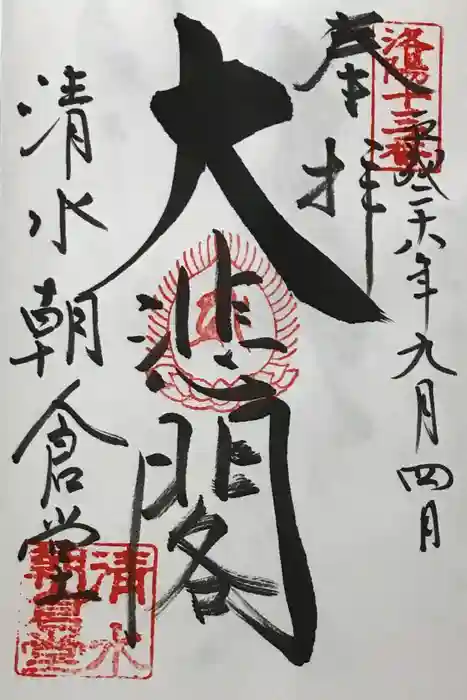 洛陽十三番
奉拝
平成二十八年九月四日
大悲閣
清水朝倉堂
清水
朝倉堂